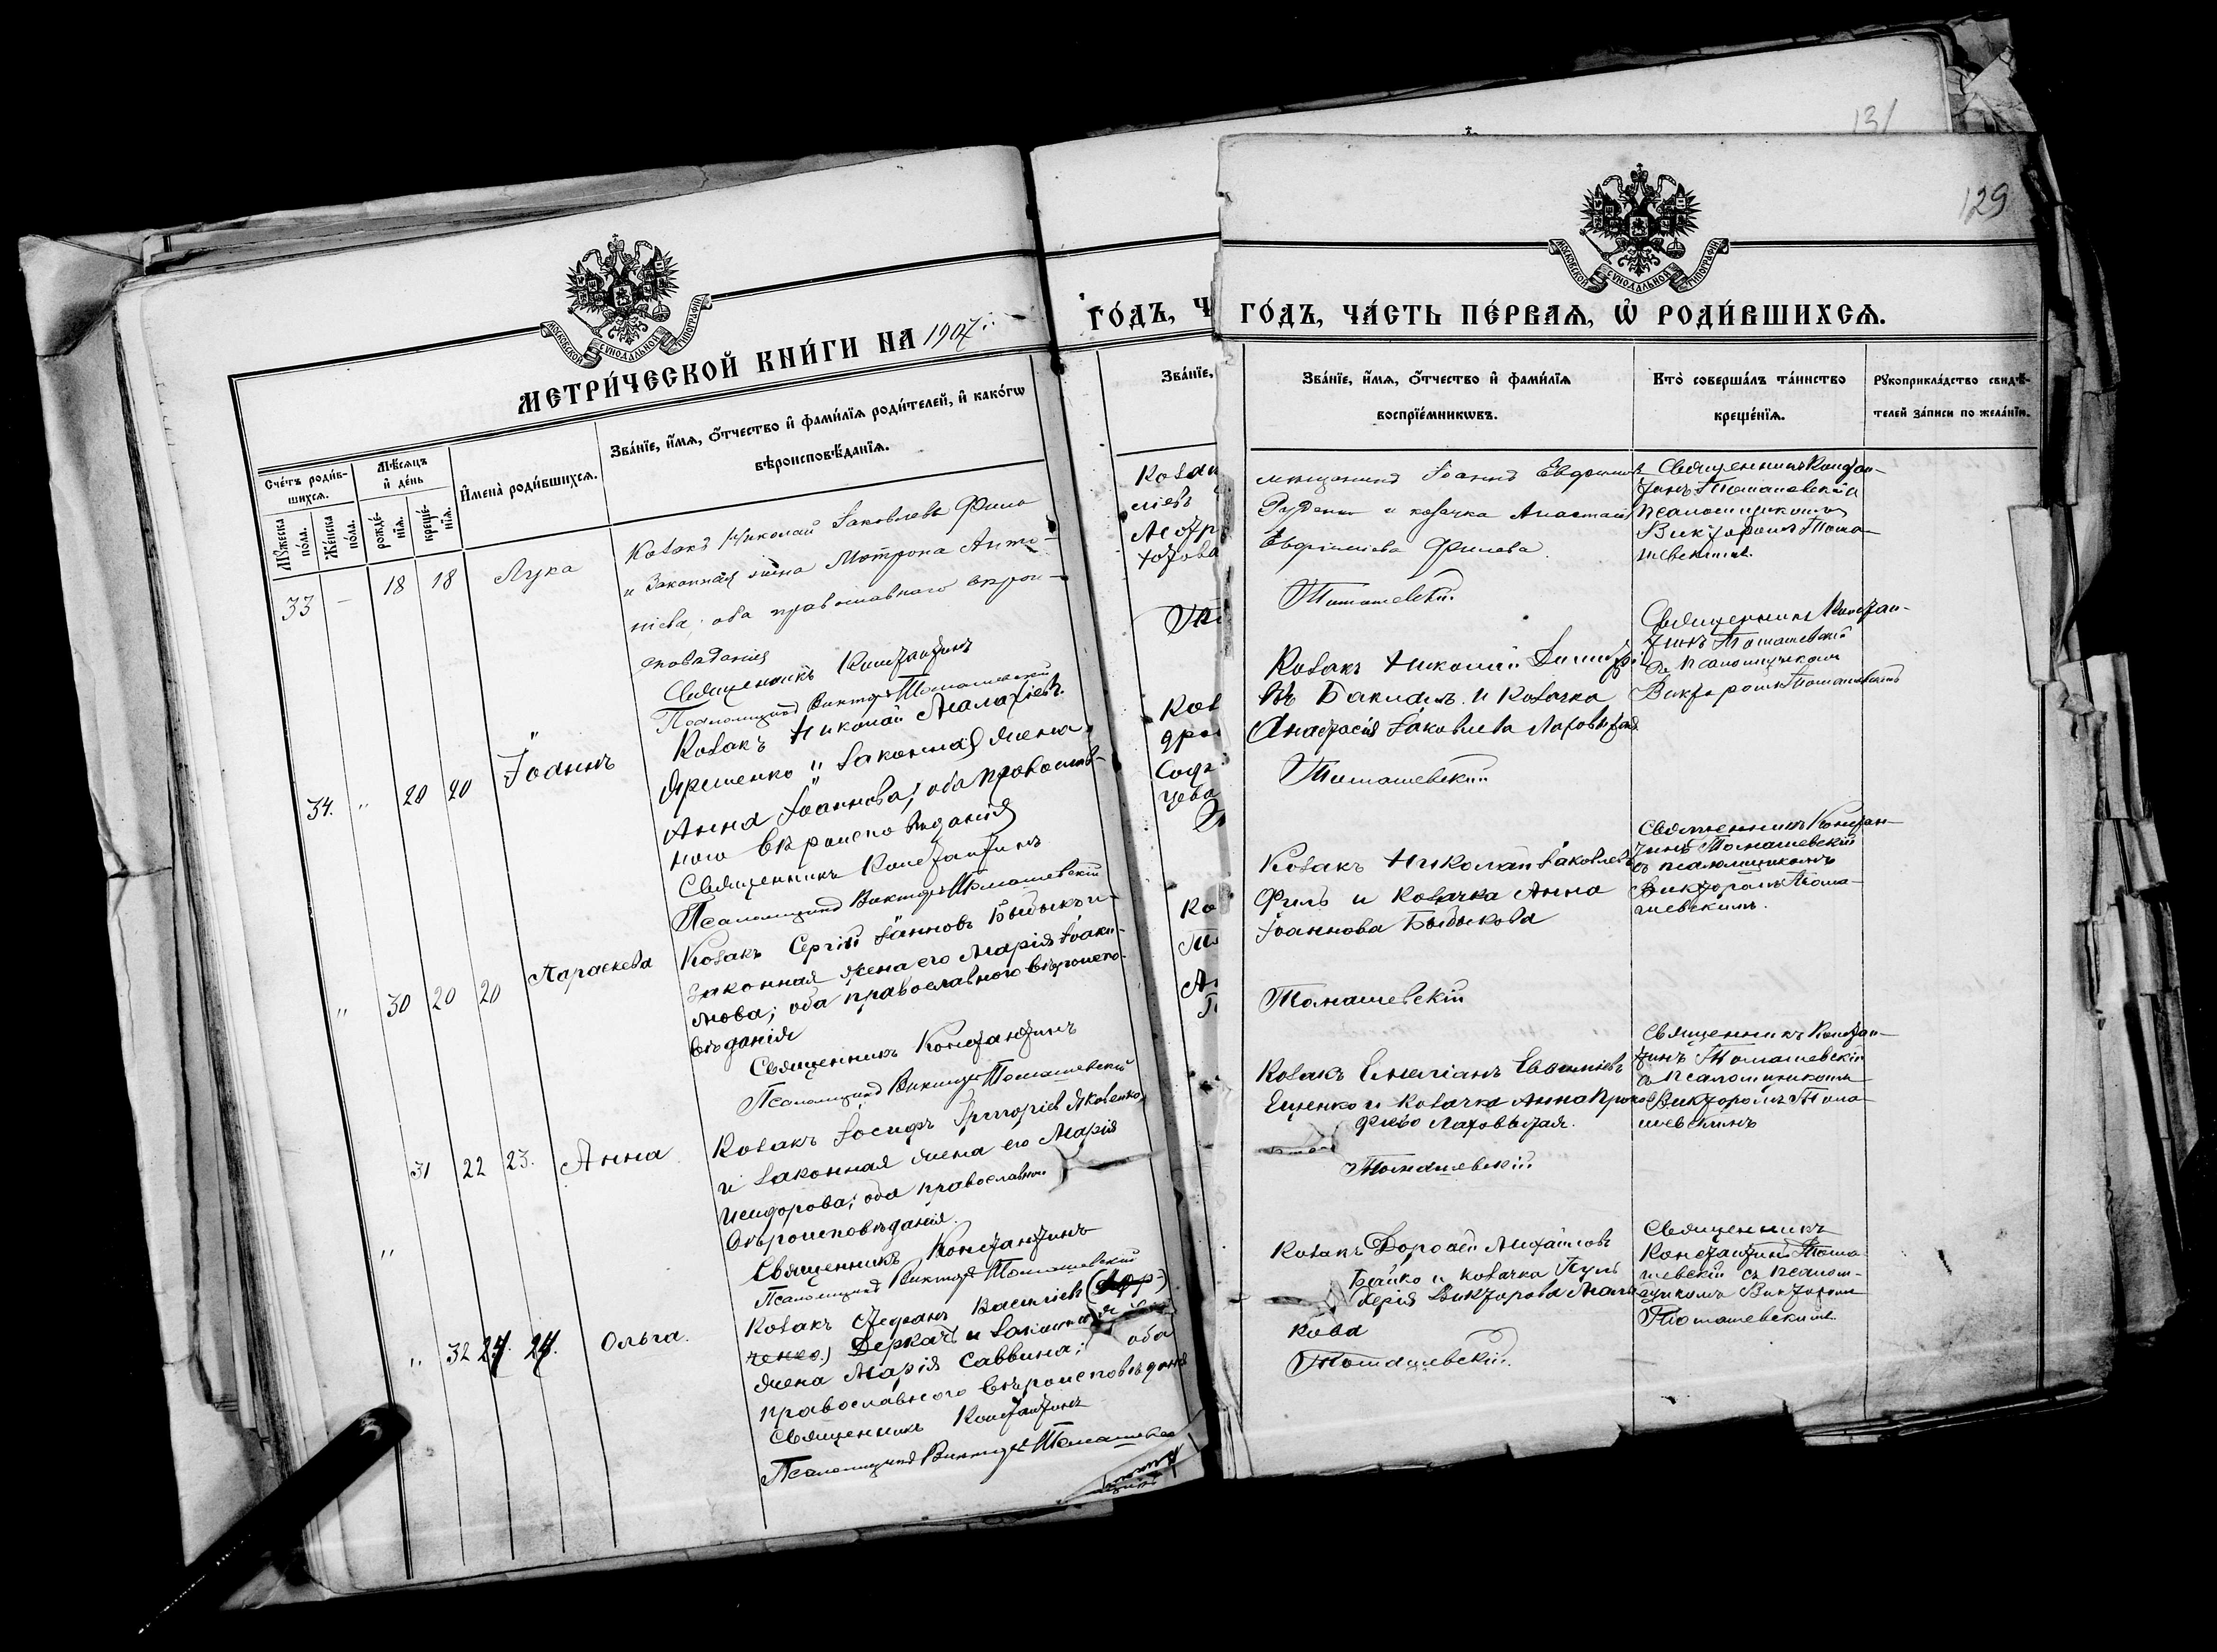 131
129
МОСКОВСКОЙ СѴНОДАЛЬНОЙ ТИПОГРАФІИ
МЕТРИ́ЧЕСКОЙ КНИ́ГИ НА 1907 г.
Сче́тъ роди́в-
шихсѧ.
Мѣ́сѧцъ
и҆ де́нь
И҆мена̀ роди́вшихсѧ.
Зва́нїе, и҆́мѧ, ѻ҆́тчество и҆ фами́лїѧ роди́телей, и҆ како́гѡ
вѣроисповѣ́данїѧ.
Мꙋ́жеска
по́ла.
Же́нска
по́ла.
рожде́-
нїѧ.
креще́-
нїѧ.
33 — 18 18 Лука
Козакъ Николай Іаковлевъ Филь
и законная жена Матрона Анто-
ніева, оба православнаго вѣрои-
сповѣданія
Священникъ Константинъ
Псаломщикъ Викторъ Томашевскій
34. " 20 20 Іоаннъ
Козакъ Николай Малахіевъ
Ярешенко и законная жена
Анна Іоаннова; оба православ-
наго вѣроисповѣданія
Священникъ Константинъ
Псаломщикъ Викторъ Томашевскій
" 30 20 20 Параскева
Козакъ Сергій Іанновъ Быбыкъ и
законная жена его Марія Іоаки-
мова; оба православного вѣроиспо-
вѣданія
Священникъ Константинъ
Псаломщикъ Викторъ Томашевскій
" 31 22 23. Анна
Козакъ Іосифъ Григоріев Яковенко
и законная жена его Марія
Исидорова; оба православнаго
вѣроисповѣданія.
Священникъ Константинъ
Псаломщикъ Викторъ Томашевскій
" 32 24. 24. Ольга.
Козакъ Стефанъ Василіев
ченко.) Деркачъ и законная
жена Марія Саввина; оба
православного вѣроисповѣданія
Священникъ Константинъ
Псаломщикъ Викторъ Томашевскій
ГО́ДЪ, Ч
Зва́нїе,
МОСКОВСКОЙ СѴНОДАЛЬНОЙ ТИПОГРАФІИ
ГО́ДЪ, ЧА́СТЬ ПЕ́РВАѦ, Ѡ҆ РОДИ́ВШИХСѦ.
Зва́нїе, и҆́мѧ, ѻ҆́тчество и҆ фами́лїѧ
воспрїе́мникѡвъ.
Кто̀ соверша́лъ та́инство
креще́нїѧ.
Рꙋкоприкла́дство свидѣ́-
телей за́писи по жела́нїю.
мещанинъ Іоаннъ Евфиміевъ
Руденко и козачка Анастасія
Евфиміева Филева.
Томашевскій.
Священникъ Констан-
тинъ Томашевскій
псаломщикомъ
Викторомъ Тома-
шевскимъ.
Козакъ Николай Димитрі-
въ Бакланъ и Козачка
Анастасія Іаковлева Маховитая
Томашевскій
Священникъ Констан-
тинъ Томашевскій
съ псаломщикомъ
Викторомъ Томашевскимъ
Козакъ Николай Іаковлевъ
Филь и Козачка Анна
Іоаннова Быбыкова
Томашевскій
Священникъ Констан-
тинъ Томашевскій
съ псаломщикомъ
Викторомъ Тома-
шевскимъ.
Козакъ Емеліанъ Евфиміевъ
Ещенко и козачка Анна Проко
фіева Маховытая.
Томашевскій
Священникъ Констан-
тинъ Томашевскій
съ псаломщикомъ
Викторомъ Тома-
шевскимъ
Козакъ Дорофей Михайловъ
Бойко и козачка Пуль
херія Викторова Мали
кова
Томашевскій.
Священникъ
Константинъ Тома-
шевскій съ псалом-
щикомъ Викторомъ
Томашевскимъ.